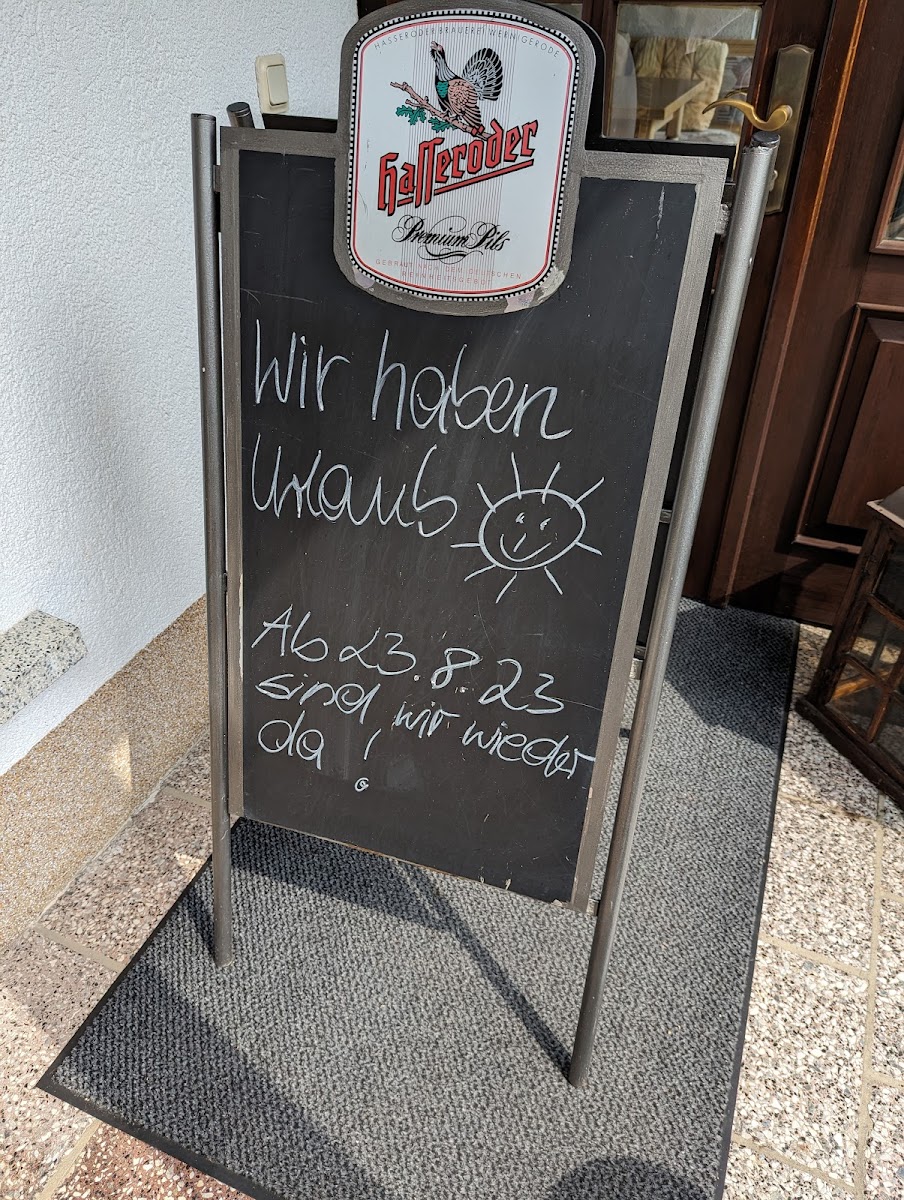 HASSERÖDER BRAUEREI WERNIGERODE
Hasseröder
Premium Pils
GEBRAUT NACH DEM DEUTSCHEN
REINHEITSGEBOT
Wir haben
Urlaub
Ab 23.8.23
sind wir wieder
da !